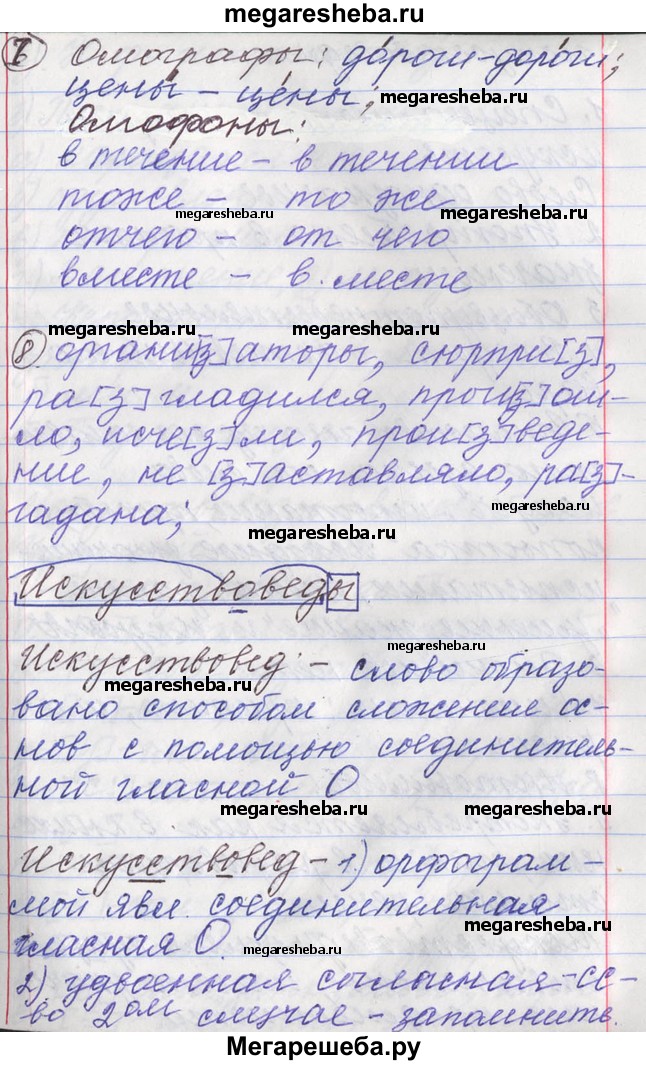 megaresheba.ru
7 Омографы: до́роги - доро́ги;
цены́ - це́ны; megaresheba.ru
Омофоны:
в течение - в течении
тоже - то же
megaresheba.ru megaresheba.ru
отчего - от чего
вместе - в месте
megaresheba.ru megaresheba.ru
8. органи[з]аторы, сюрпри[з],
ра[з]гладился, прои[з]ош-
ло, исче[з]ли, прои[з]веде-
ние, не [з]аставляло, ра[з]-
megaresheba.ru
гадана;
megaresheba.ru
Искусствоведы
megaresheba.ru
Искусствовед - слово образо-
megaresheba.ru
вано способом сложения ос-
нов с помощью соединитель-
ной гласной О
megaresheba.ru megaresheba.ru
Искусствовед - 1.) орфограм-
мой явл. соединительная
гласная О.
megaresheba.ru
2) удвоенная согласная -сс-
-во 2ом случае - запомнить.
Мегарешеба.ру